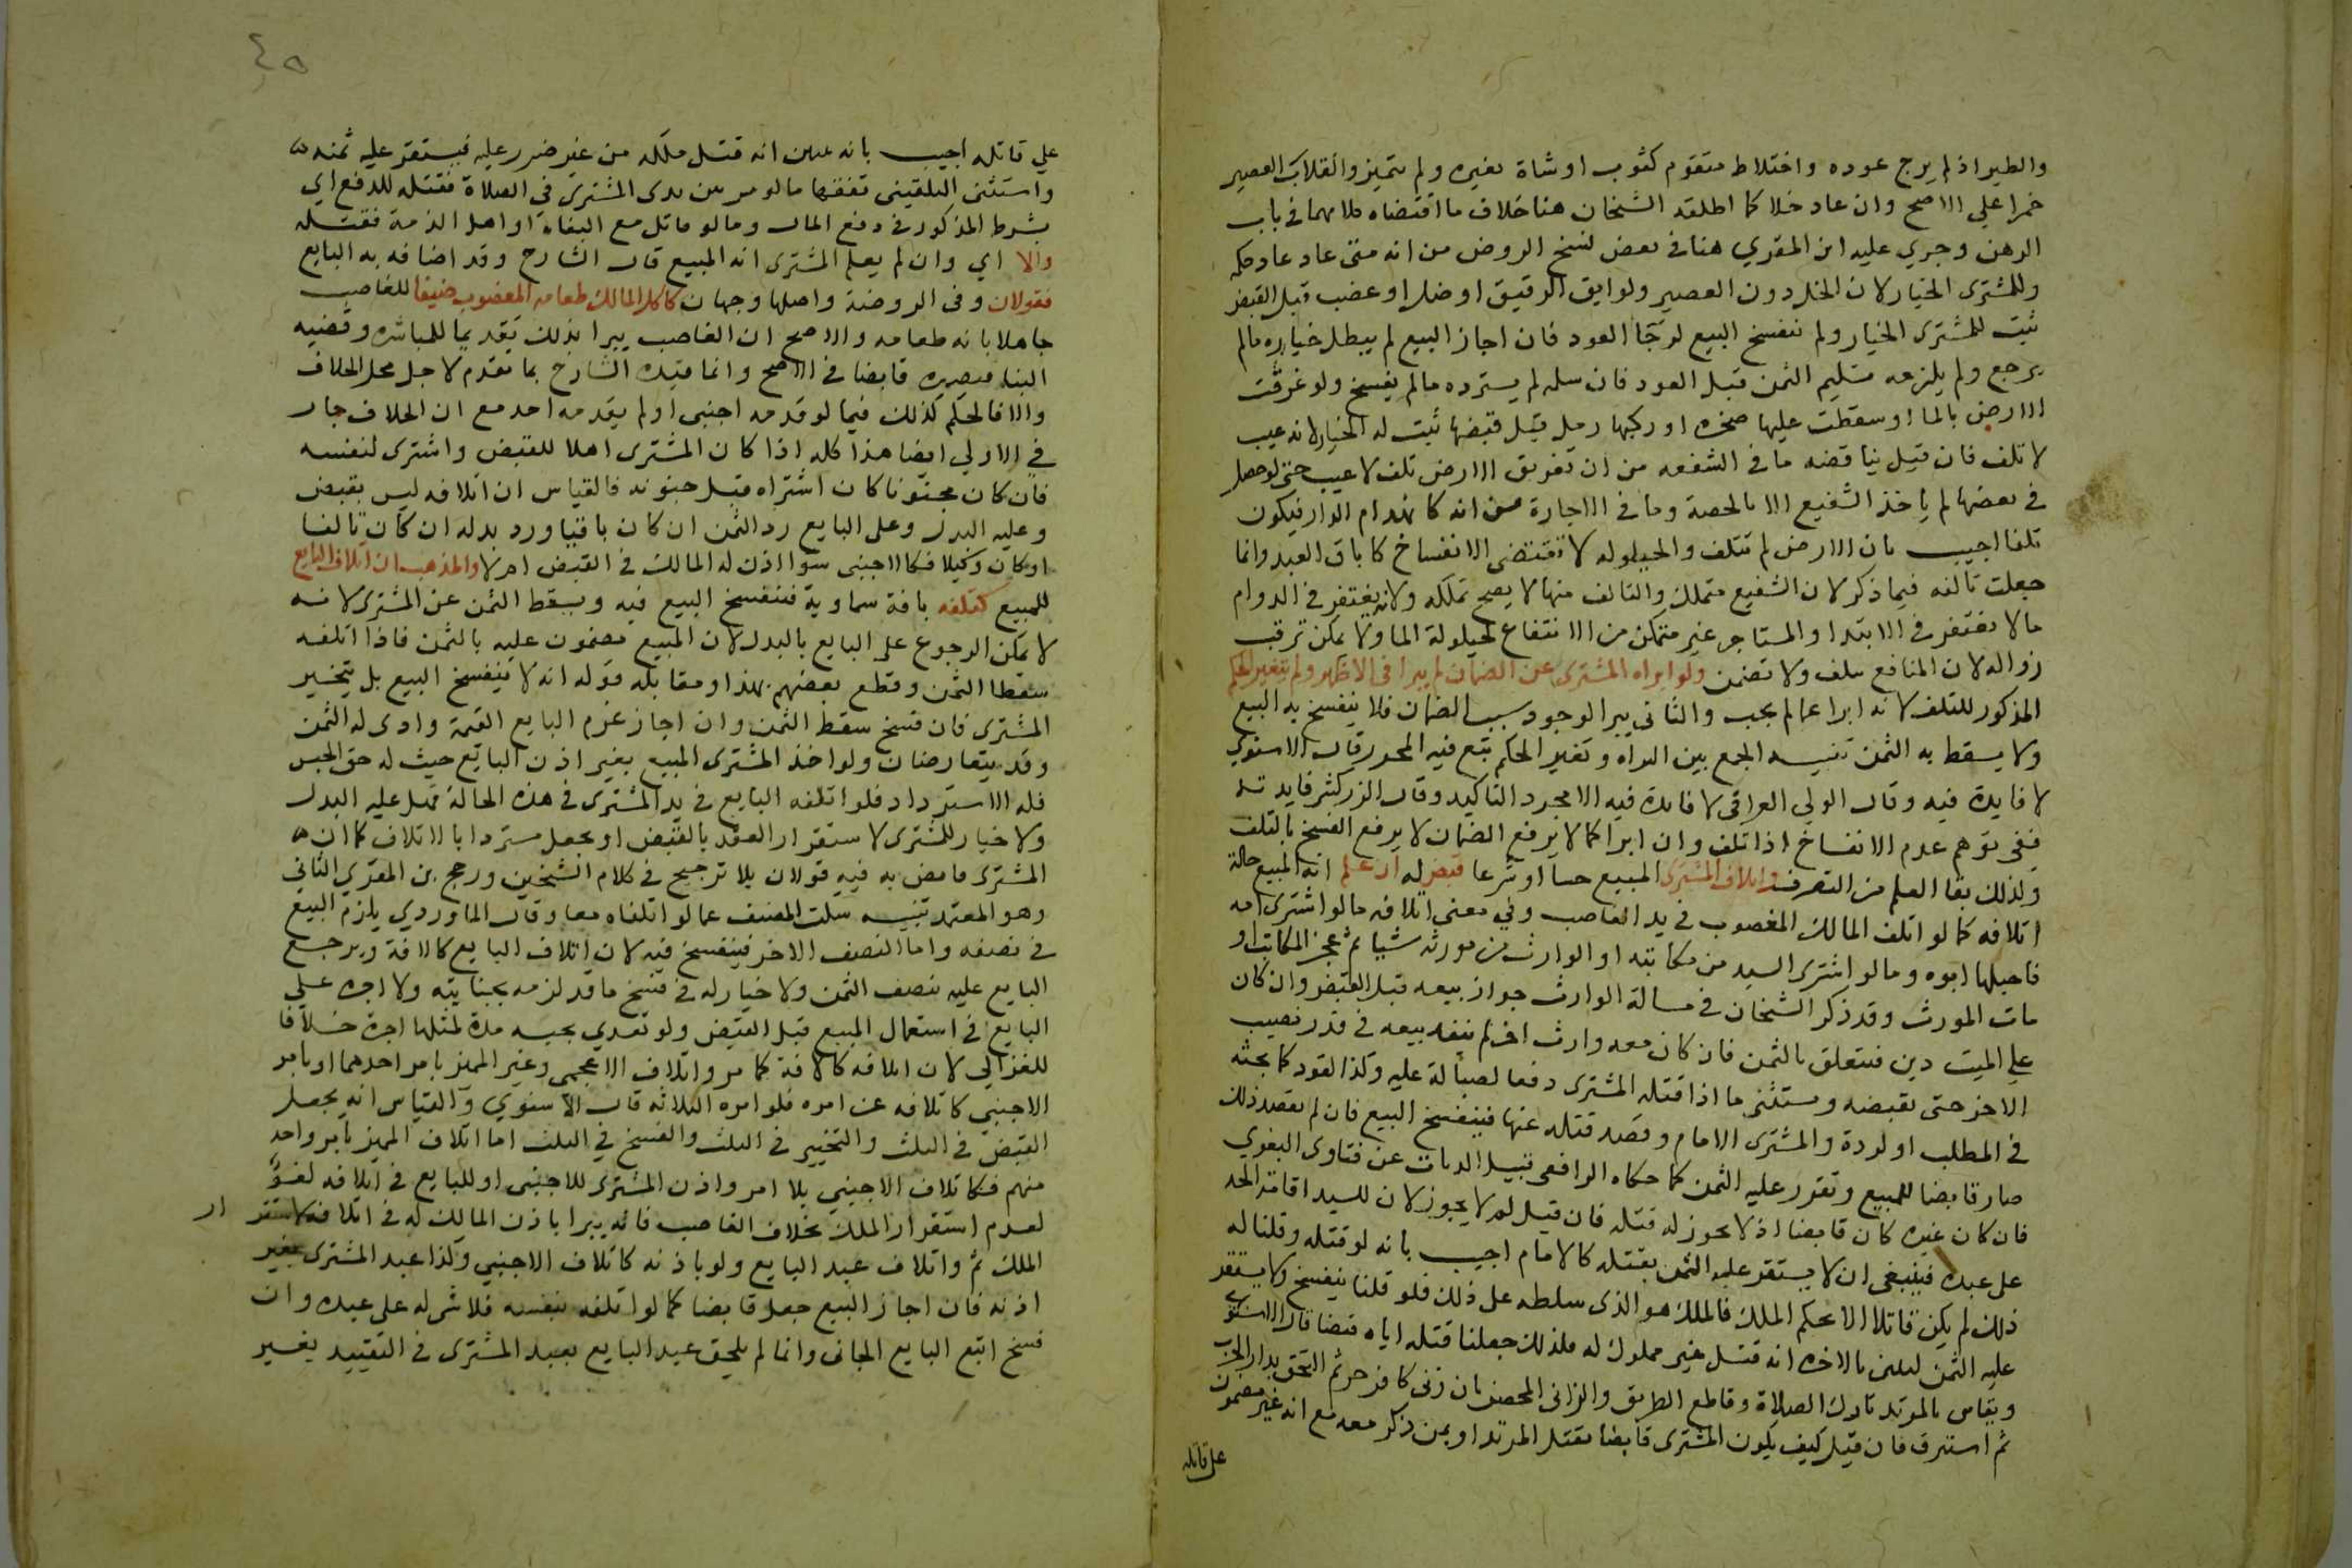 والطير اذا لم يرج عوده واختلاط متقوم كثوب او شاة بغيره ولم يتميز وانقلاب العصير
خمرا على الاصح وان عاد خلا كما اطلقه الشيخان هنا خلاف ما اقتضاه كلامهما في باب
الرهن وجرى عليه ابن المقري هنا في بعض نسخ الروض من انه متى عاد عاد حكمه
وللمشترى الخيار لان الخل دون العصير ولو ابق الرقيق او ضل او غصب قبل القبض
ثبت للمشترى الخيار ولم ينفسخ البيع لرجا العود فان اجاز البيع لم يبطل خياره مالم
يرجع ولم يلزمه تسليم الثمن قبل العود فان سلمه لم يسترده مالم يفسخ ولو غرقت
الارض بالما او سقطت عليها صخره او ركبها رمل قبل قبضها ثبت له الخيار لانه عيب
لا تلف فان قيل يناقضه ما في الشفعه من ان تغريق الارض تلف لا عيب حتى لو حصل
في بعضها لم ياخذ الشفيع الا بالحصة وما في الاجارة من انه كانهدام الدار فيكون
تلفا اجيب بان الارض لم تتلف والحيلوله لا تقتضى الانفساخ كاباق العبد وانما
جعلت تالفه فيما ذكر لان الشفيع متملك والتالف منها لا يصح تملكه ولانه يغتفر في الدوام
مالا يغتفر في الابتدا والمستاجر غير متمكن من الانتفاع لحيلولة الما ولا يمكن ترقب
زواله لان المنافع تتلف ولا تضمن ولو ابراه المشترى عن الضمان لم يبرا في الاظهر ولم يتغير الحكم
المذكور للتلف لانه ابرا عما لم يجب والثاني يبرا لوجود سبب الضمان فلا ينفسخ به البيع
ولا يسقط به الثمن تنبيه الجمع بين البراه وتغير الحكم تبع فيه المحرر قال الاسنوي
لا فايدة فيه وقال الولي العراقي لا فايدة فيه الا مجرد التاكيد وقال الزركشي فايدته
نفي توهم عدم الانفساخ اذا تلف وان ابرا كما لا يرفع الضمان لا يرفع الفسخ بالتلف
وكذلك بقا العلم من التصرف واتلاف المشترى المبيع حسا او شرعا قبض له ان علم انه المبيع حالة
اتلافه كما لو اتلف المالك المغصوب في يد الغاصب وفي معنى اتلافه ما لو اشترى امه
فاحبلها ابوه وما لو اشترى السيد من مكاتبه او الوارث من مورثه شيا ثم عجز المكاتب او
مات المورث وقد ذكر الشيخان في مسالة الوارث جواز بيعه قبل القبض وان كان
على الميت دين فيتعلق بالثمن فان كان معه وارث اخر لم ينفذ بيعه في قدر نصيب
الاخر حتى يقبضه ويستثنى ما اذا قتله المشترى دفعا لصياله عليه وكذا لقود كما بحثه
في المطلب او لردة والمشترى الامام وقصد قتله عنها فينفسخ البيع فان لم يقصد ذلك
صار قابضا للمبيع وتقرر عليه الثمن كما حكاه الرافعي قبيل الديات عن فتاوى البغوي
فان كان غيره كان قابضا اذ لا يجوز له قتله فان قيل لم لا يجوز لان للسيد اقامة الحد
على عبده فينبغي ان لا يستقر عليه الثمن بقتله كالامام اجيب بانه لو قتله وقلنا له
ذلك لم يكن قاتلا الا بحكم الملك فالملك هو الذى سلطه على ذلك فلو قلنا ينفسخ ولا يستقر
عليه الثمن لتبين بالاخره انه قتل غير مملوك له فلذلك جعلنا قتله اياه قبضا قال الاسنوي
ويقاس بالمرتد تارك الصلاة وقاطع الطريق والزاني المحصن بان زنى كافر حر ثم التحق بدار الحرب
ثم استرق فان قيل كيف يكون المشترى قابضا بقتل المرتد او بمن ذكر معه مع انه غير مضمون
على قاتله
٤٥
علي قاتله اجيب بانه تبين انه قتل ملكه من غير ضرر عليه فيستقر عليه ثمنه
واستثنى البلقيني تفقها ما لو مر بين يدى المشترى في الصلاة فقتله للدفع اي
بشرط المذكور في دفع المال وما لو قاتل مع البغاة او اهل الذمة فقتله
والا اي وان لم يعلم المشترى انه المبيع قال الشارح وقد اضافه به البايع
فقولان وفى الروضة واصلها وجهان كاكل المالك طعامه المغصوب ضيفا للغاصب
جاهلا بانه طعامه والاصح ان الغاصب يبرا بذلك تقديما للمباشره وقضيه
البنا مصيره قابضا في الاصح وانما قيده الشارح بما تقدم لاجل محل الخلاف
والا فالحكم كذلك فيما لو قدمه اجنبى او لم يقدمه احد مع ان الخلاف جار
في الاولي ايضا هذا كله اذا كان المشترى اهلا للقبض واشترى لنفسه
فان كان مجنونا كان اشتراه قبل جنونه فالقياس ان اتلافه ليس بقبض
وعليه البدل وعلى البايع رد الثمن ان كان باقيا ورد بدله ان كان تالفا
او كان وكيلا فكالاجنبى سوا اذن له المالك في القبض ام لا والمذهب ان اتلاف البايع
للمبيع كتلفه بافة سماوية فينفسخ البيع فيه ويسقط الثمن عن المشترى لانه
لا يمكن الرجوع على البايع بالبدل لان المبيع مضمون عليه بالثمن فاذا اتلفه
سقط الثمن وقطع بعضهم بهذا ومقابله قوله انه لا ينفسخ البيع بل يتخير
المشترى فان فسخ سقط الثمن وان اجاز غرم البايع القيمة وادى له الثمن
وقد يتعارضان ولو اخذ المشترى المبيع بغير اذن البايع حيث له حق الحبس
فله الاسترداد فلو اتلفه البايع في يد المشترى في هذه الحالة فهل عليه البدل
ولا خيار للمشترى لاستقرار العقد بالقبض او يجعل مستردا بالاتلاف كما ان
المشترى قابض به فيه قولان بلا ترجيح في كلام الشيخين ورجح بن المقري الثاني
وهو المعتمد تنبيه سكت المصنف عما لو اتلفاه معا وقال الماوردي يلزم البيع
في نصفه واما النصف الاخر فينفسخ فيه لان اتلاف البايع كالافة ويرجع
البايع عليه بنصف الثمن ولا خيار له في فسخ ما قد لزمه بجنايته ولا اجره على
البايع في استعمال المبيع قبل القبض ولو تعدي بحبسه مدة لمثلها اجرة خلافا
للغزالي لان اتلافه كالافة كما مر واتلاف الاعجمى وغير المميز بامر احدهما او بامر
الاجنبي كاتلافه عن امره فلو امره الثلاثه قال الاسنوي والقياس انه يجعل
القبض في الثلث والتخيير في الثلث والفسخ في الثلث اما اتلاف المميز بامر واحد
منهم فكاتلاف الاجنبي بلا امر واذن المشترى للاجنبى او للبايع في اتلافه لغو
لعدم استقرار الملك بخلاف الغاصب فانه يبرا باذن المالك له في اتلافه لاستقرار
الملك ثم واتلاف عبد البايع ولو باذنه كاتلاف الاجنبي وكذا عبد المشترى بغير
اذنه فان اجاز البيع جعل قابضا كما لو اتلفه بنفسه فلا شى له على عبده وان
فسخ اتبع البايع الجانى وانما لم يلحق عبد البايع بعبد المشترى في التقييد بغير